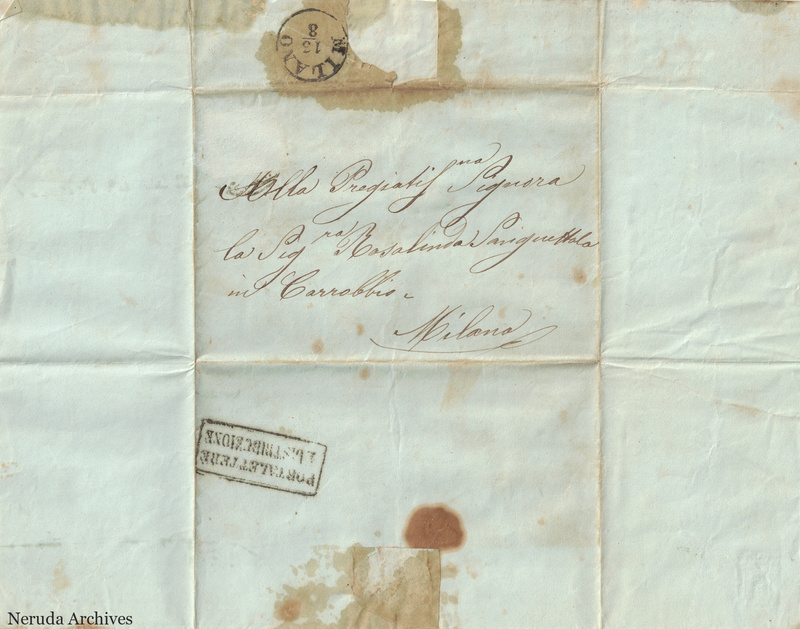 MILANO
13
8
Alla Pregiatis.ma Signora
la Sig.ra Rosalinda Sanquettola
in Carrobbio.
Milano
PORTALETTERE
DISTRIBUZIONE
Neruda Archives